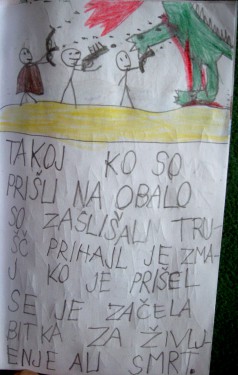 TAKOJ KO SO
PRIŠLI NA OBALO
SO ZASLIŠALI TRU-
ŠČ PRIHAJL JE ZMA-
J KO JE PRIŠEL
SE JE ZAČELA
BITKA ZA ŽIVLJ-
ENJE ALI SMRT.